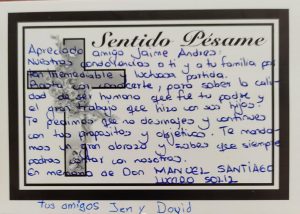 Sentido Pésame
Apreciado amigo Jaime Andres.
Nuestras condolencias a ti y a tu familia por
tan irremediable y luchosa partida.
Basta con conocerte, para saber la cali
dad de ser humano que fue tu padre y
el gran trabajo que hizo con sus hijos.
Te pedimos que no desmayes y continues
con tus propositos y objetivos. Te manda
mos un gran abrazo y sabes que siempre
podras contar con nosotros.
En memoria de Don MANUEL SANTIAGO
SOLIZ
tus amigos Jen y David